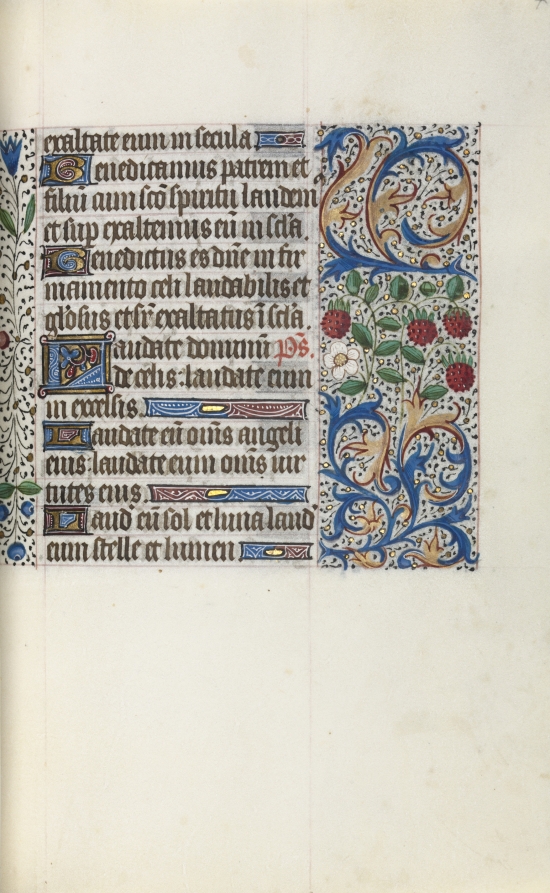 exaltate eum in secula
Benedicamus patrem et
filiū cum scō spiritu laudem
et sup exaltemus eū in scl'a.
Benedictus es dn̄e in fir
mamento celi laudabilis et
gl'osus et sr̄ exaltatus ī scl'a.
Laudate dominū p̄s.
de celis: laudate eum
in excelsis.
Laudate eū om̄s angeli
eius: laudate eum om̄s uir
tutes eius.
Laud' eū sol et luna laud'
eum stelle et lumen